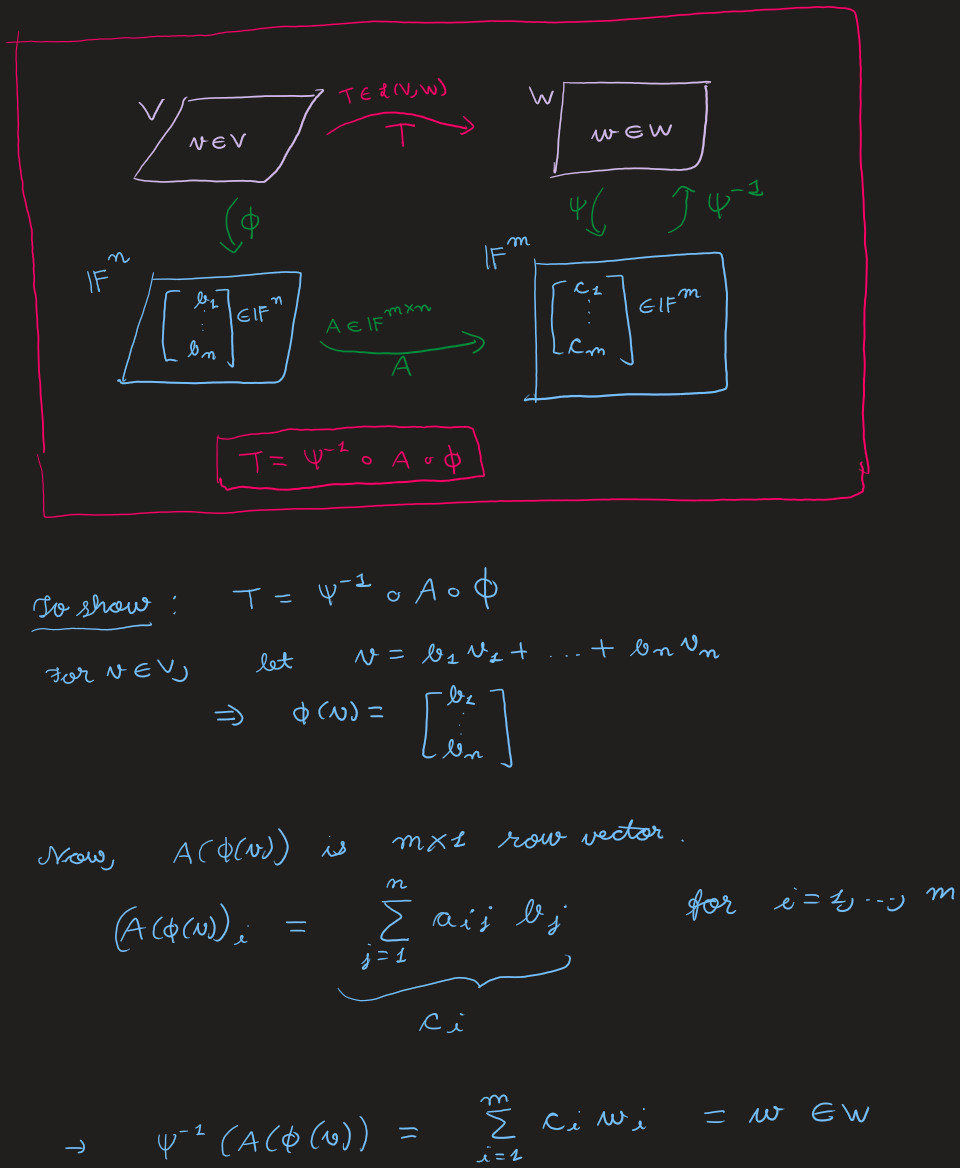 V v ∈ V T ∈ ℒ(V, W) T W w ∈ W
ϕ ψ ψ⁻¹
𝔽ⁿ [b₁ ⋮ bₙ] ∈ 𝔽ⁿ A ∈ 𝔽ᵐˣⁿ A 𝔽ᵐ [c₁ ⋮ cₘ] ∈ 𝔽ᵐ
T = ψ⁻¹ ∘ A ∘ ϕ
To show : T = ψ⁻¹ ∘ A ∘ ϕ
For v ∈ V, let v = b₁v₁ + ... + bₙvₙ
⇒ ϕ(v) = [b₁ ⋮ bₙ]
Now, A(ϕ(v)) is m×1 row vector.
(A(ϕ(v))ᵢ = ∑ⁿⱼ₌₁ aᵢⱼ bⱼ for i = 1, ..., m
cᵢ
→ ψ⁻¹(A(ϕ(v)) = ∑ᵐᵢ₌₁ cᵢ wᵢ = w ∈ W